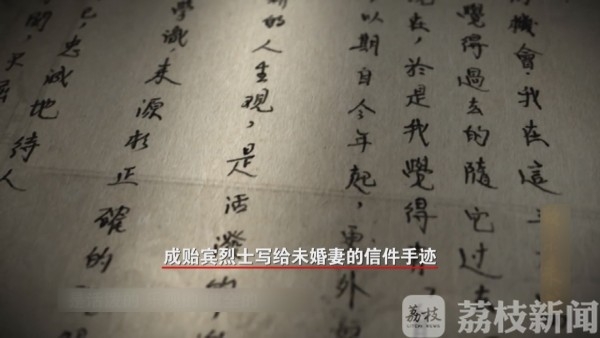 機會,我在這
覺得過去的隨它過去
過去,於是我覺得
以期自今年起,更外
的人生觀,是活潑的
學識,来源於正確的
己,忠誠地
待人
成贻宾烈士写给未婚妻的信件手迹
荔枝
LITCHI NEWS
荔枝新闻